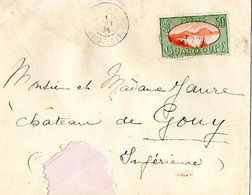 50
GUADELOUPE
Monsieur et Madame Faure
château de Gouy
(Inférieure)